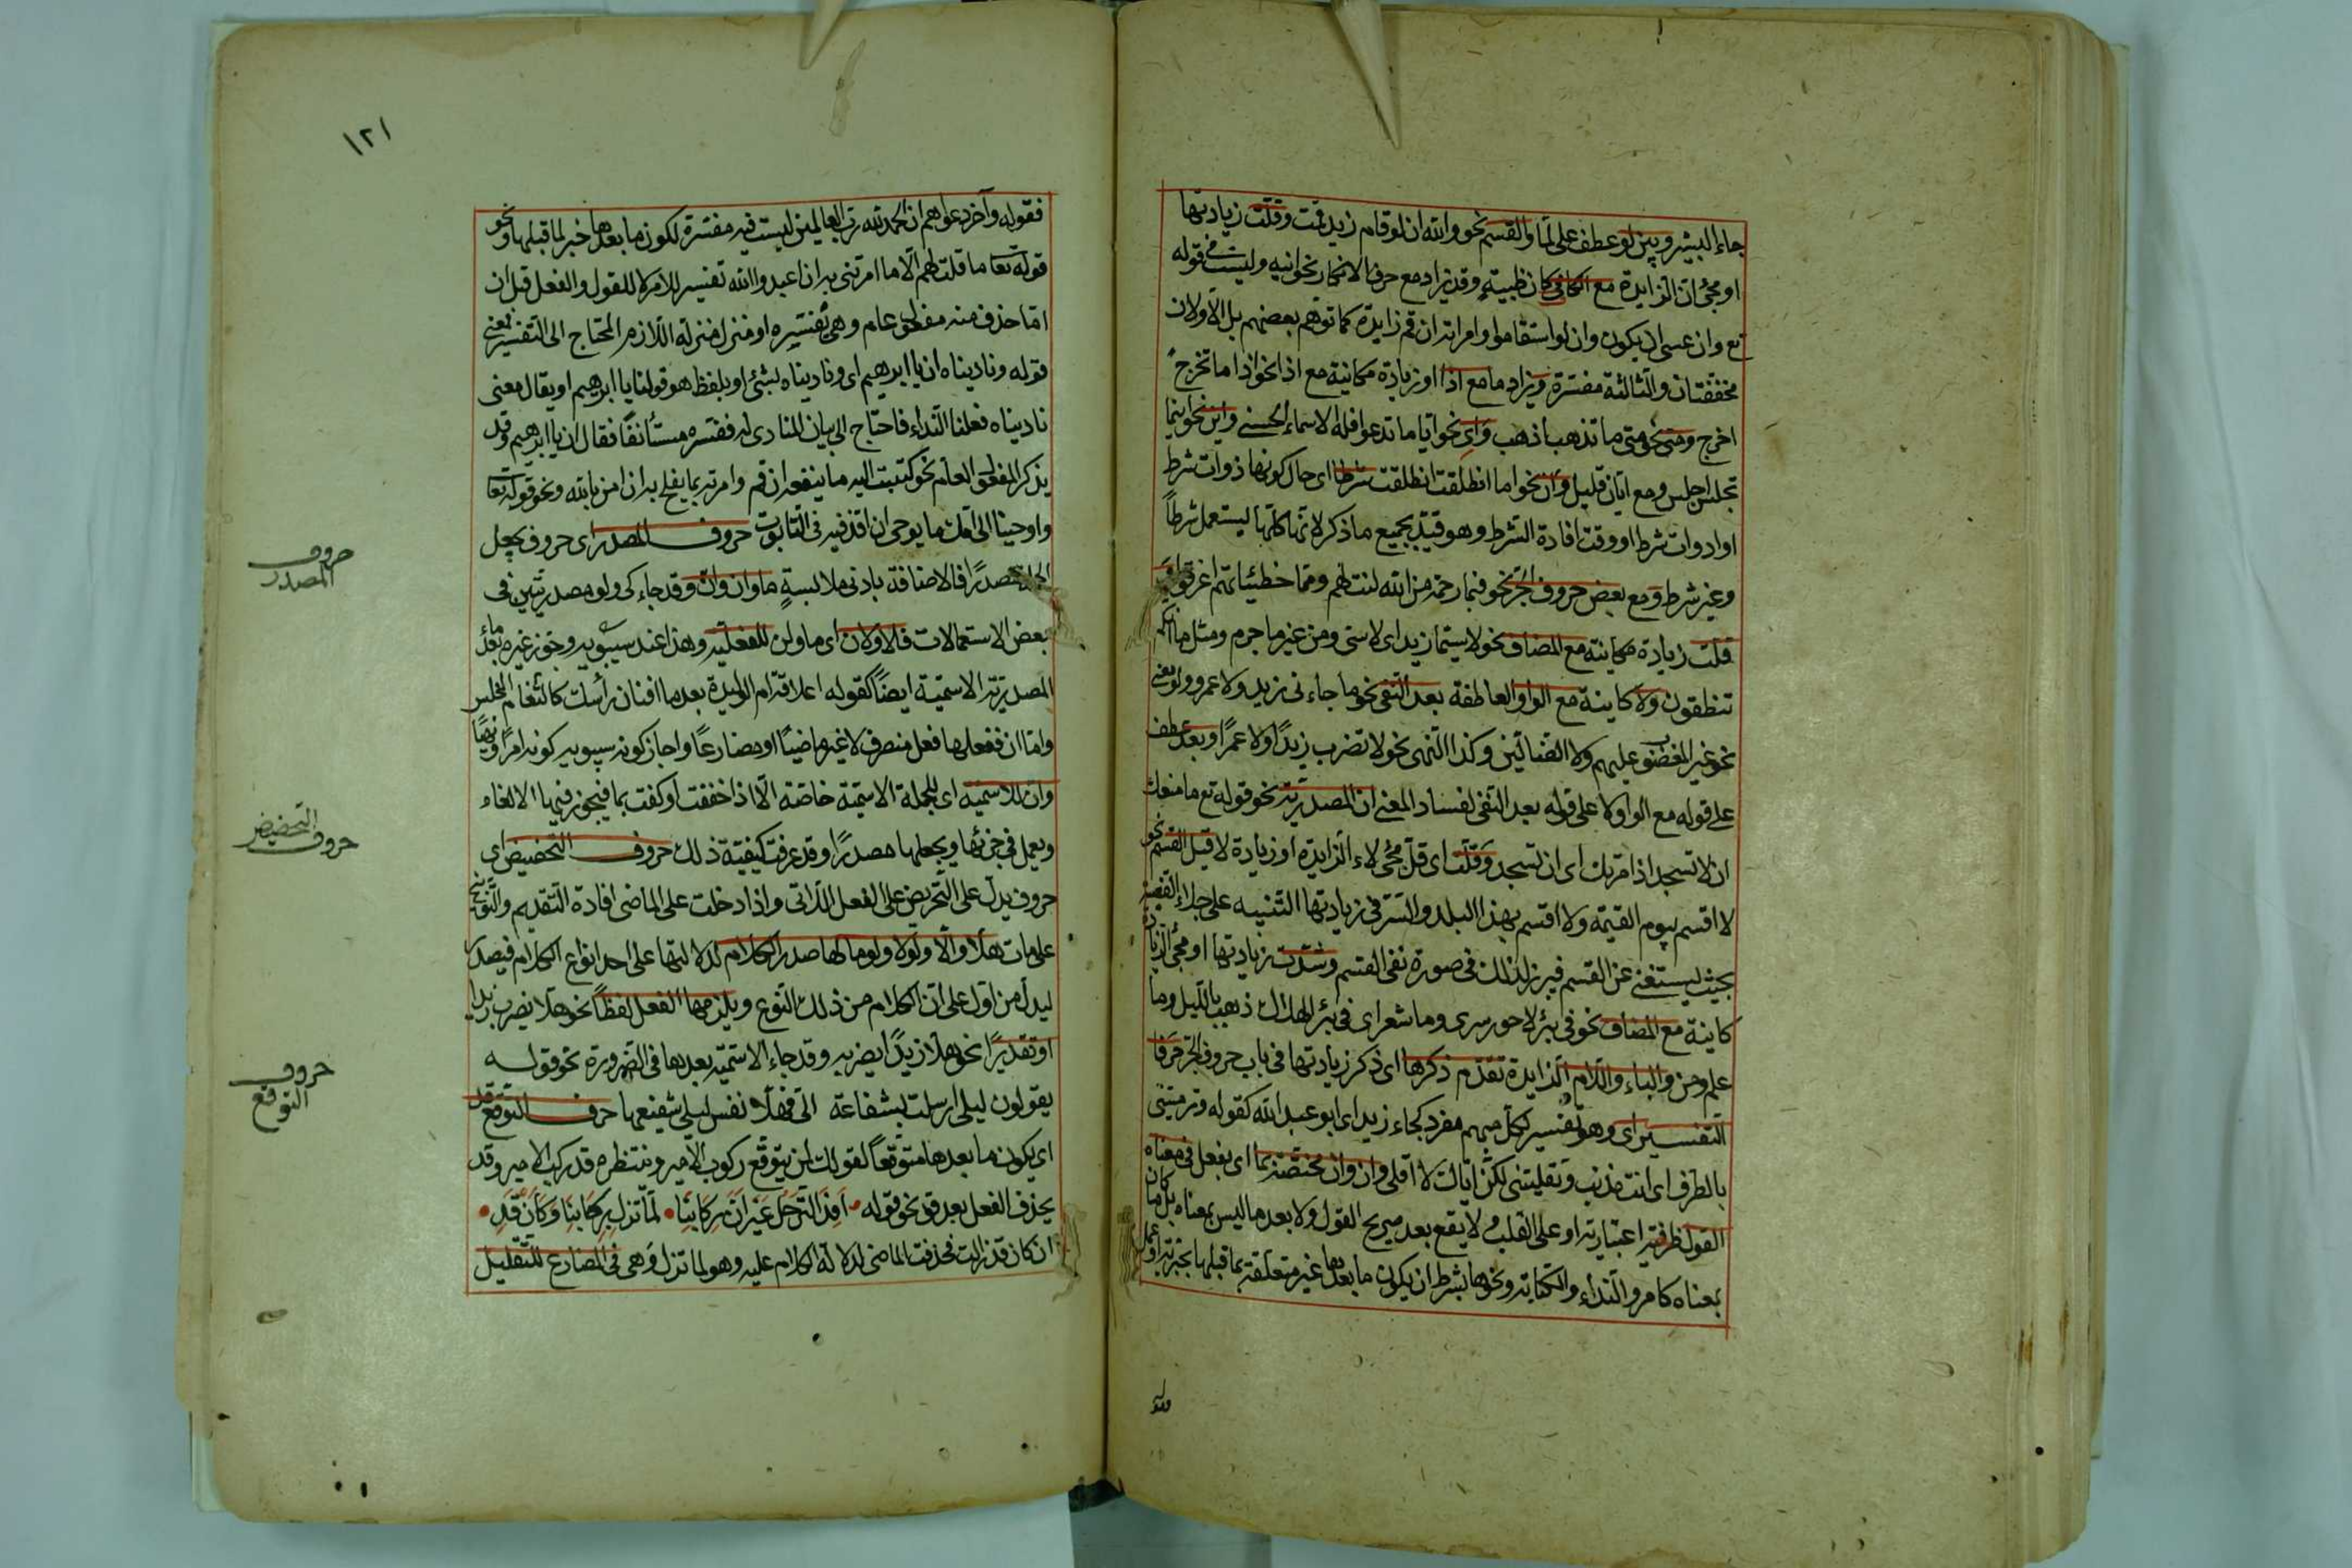 جاء البشير وبين لو عطف على لما والقسم نحو والله ان لو قام زيد قمت وقلت زيادتها
او مجئ ان الزايدة مع الكاف كان ظبية وقد يزاد مع حرف الانكار نحو انيه وليست في قوله
تع وان عسى ان يكون وان لو استقاموا وامرته ان قم زايدة كما توهم بعضهم بل الاولان
مخففتان والثالثة مفسرة ويزاد ما مع اذا او زيادة مكانية مع اذا نحو اذا ما تخرج
اخرج ومتى نحو متى ما تذهب اذهب واي نحو ايا ما تدعوا فله الاسماء الحسنى واين نحو اينما
تجلس اجلس ومع ايان قليل وان نحو اما انطلقت انطلقت شرطا اى حال كونها ذوات شرط
او ادوات شرط او وقت افادة الشرط وهو قيد بجميع ما ذكر لانها كلها يستعمل شرطاً
وغير شرط ومع بعض حروف الجر نحو فبما رحمة من الله لنت لهم ومما خطيئاتهم اغرقوا
قلت زيادة مكانية مع المضاف نحو لا سيما زيد اى لا سى ومن غير ما جرم ومثل ما انكم
تنطقون ولا كاينة مع الواو العاطفة بعد النفي نحو ما جاءنى زيد ولا عمرو ولو معنى
نحو غير المغضوب عليهم ولا الضالين وكذا النهى نحو لا تضرب زيدًا ولا عمرًا وبعد عطف
على قوله مع الواو لا على قوله بعد النفي لفساد المعنى ان المصدرية نحو قوله تع ما منعك
ان لا تسجد اذ امرتك اى ان تسجد وقلت اى قل مجئ لاء الزايدة او زيادة لا قبل القسم نحو
لا اقسم بيوم القيمة ولا اقسم بهذا البلد والسر في زيادتها التنبيه على جلاء القضية
بحيث يستغنى عن القسم فيبرز لذلك فى صورة نفى القسم وشذت زيادتها او مجئ الزيادة
كاينة مع المضاف نحو فى بئر لا حور سرى وما شعر اى فى بئر الهلاك ذهب بالليل وما
علم ومن والباء واللام الزايدة تقدم ذكرها اى ذكر زيادتها فى باب حروف الجر حرفا
التفسير اى وهو تفسير كل مبهم مفرد كجاء زيد اى ابو عبد الله كقوله وترميننى
بالطرف اى انت مذنب وتقليننى لكن اياك لا اقلى وان وان مختصة بما اى بفعل فى معناه
القول ظرفية اعتبارية او على القلب ولا يقع بعد صريح القول ولا بعد ما ليس بمعناه بل ما كان
بمعناه كامر والنداء والكتابة ونحوها بشرط ان يكون ما بعدها غير متعلقة بما قبلها
١٢١
فقوله وآخر دعواهم ان الحمد لله رب العالمين ليست فيه مفسرة لكون ما بعدها خبر لما قبلها ونحو
قوله تعا ما قلت لهم الا ما امرتنى به ان اعبدوا الله تفسير للامر لا للقول والفعل قبل ان
اما حذف منه مفعول عام وهى تفسيره او منزل منزلة اللازم المحتاج الى التفسير فمعنى
قوله وناديناه ان يا ابرهيم اى وناديناه بشئ او بلفظ هو قولنا يا ابرهيم او يقال معنى
ناديناه فعلنا النداء فاحتاج الى بيان المنادى له ففسره مستأنفًا فقال ان يا ابرهيم وقد
يذكر المفعول العام نحو كتبت اليه ما ينفعه ان قم وامرته بما يفلح به ان امن بالله ونحو قوله تعا
واوحينا الى امك ما يوحى ان اقذفيه فى التابوت حروف المصدر اى حروف يجعل
مصدرًا فالاضافة بادنى ملابسةٍ ما وان وان وقد جاء كى ولو مصدريتين فى
بعض الاستعمالات فالاولان اى ما وان للفعلية وهذا عند سيبويه وجوز غيره بعد ما
المصدرية الاسمية ايضًا كقوله اعلاقة ام الوليدة بعد ما افنان رأسك كالثغام المخلس
واما ان ففعلها فعل متصرف لا غير ماضيًا او مضارعًا واجاز كونه سيبويه كونه امرًا ونهيًا
وان للاسمية اى للجملة الاسمية خاصة الا اذا خففت او كفت بما فيجوز فيها الالغاء
ويعمل فى جزئها ويجعلها مصدرًا وقد عرفت كيفية ذلك حروف التحضيض اى
حروف يدل على التحريض على الفعل الاتى واذا دخلت على الماضى افادة التقديم والتوبيخ
على ما فات هلا والا ولولا ولوما لها صدر الكلام لدلالتها على احد انواع الكلام فيصدر
ليدل من اول على ان الكلام من ذلك النوع ويلزمها الفعل لفظاً نحو هلا يضرب زيدا
او تقديرًا نحو هلا زيدًا يضربه وقد جاء الاسمية بعدها فى الضرورة نحو قوله
يقولون ليلى ارسلت بشفاعة الى فهلا نفس ليلى شفيعها حرف التوقع قد
اى يكون ما بعدها متوقعاً كقولك لمن يتوقع ركوب الامير وينتظره قد ركب الامير وقد
يحذف الفعل بعد قد نحو قوله • اَفِدَ التَرَحّل غَيرَ اَنَّ رِكَابَنَا • لَمّا تزل بِرِحَالِنَا وكَاَن قَدِ •
ان كان قد زالت فحذفت الماضى لدلالة الكلام عليه وهو لما تزل وهى فى المضارع للتقليل
حروف
المصدر
حروف
التحضيض
حروف
التوقع